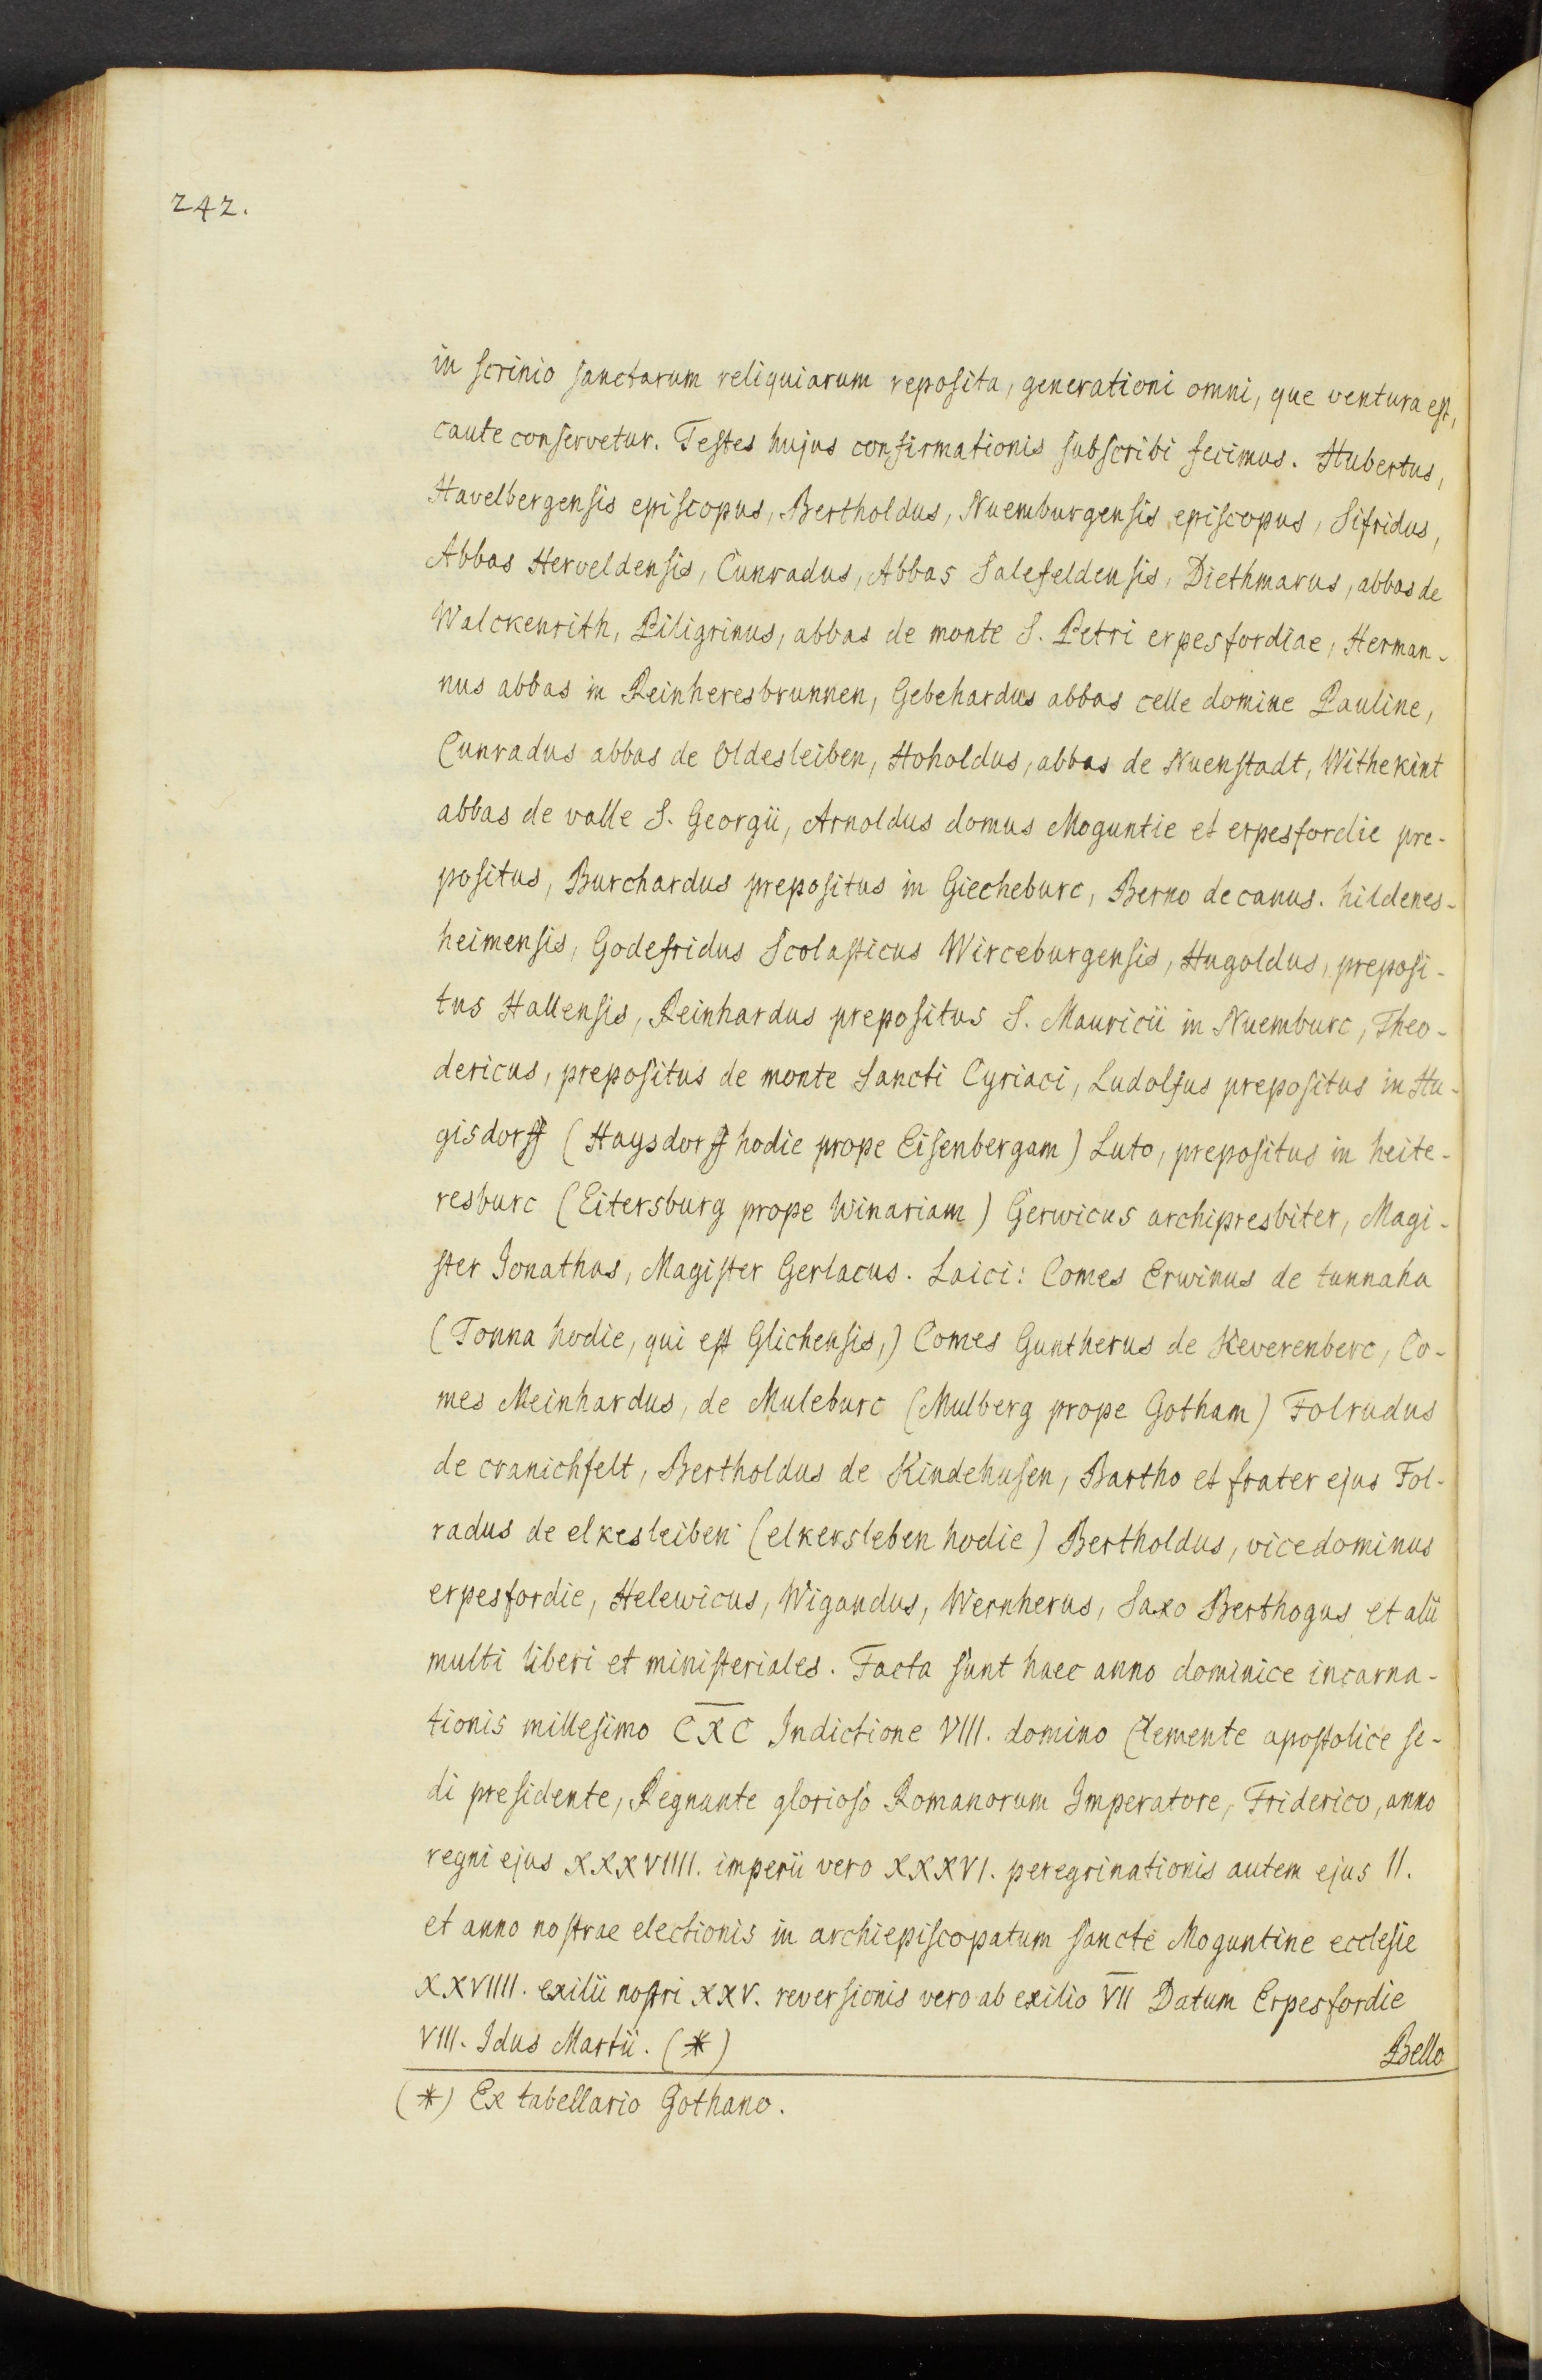 242.
in scrinio sanctarum reliquiarum reposita, generationi omni, que ventura est,
caute conservetur. Testes hujus confirmationis subscribi fecimus. Hubertus,
Havelbergensis episcopus, Bertholdus, Nuemburgensis episcopus, Sifridus,
Abbas Herveldensis, Cunradus, Abbas Salefeldensis, Diethmarus, abbas de
Walckenrith, Piligrinus, abbas de monte S. Petri erpesfordiae, Herman-
nus abbas in Reinheresbrunnen, Gebehardus abbas celle domine Pauline,
Cunradus abbas de Oldesleiben, Hoholdus, abbas de Nuenstadt, Withekint
abbas de valle S. Georgii, Arnoldus domus Moguntie et erpesfordie pre-
positus, Burchardus prepositus in Giecheburc, Berno decanus. hildenes-
heimensis, Godefridus Scolasticus Wirceburgensis, Hugoldus, preposi-
tus Hallensis, Reinhardus prepositus S. Mauricii in Nuemburc, Theo-
dericus, prepositus de monte Sancti Cyriaci, Ludolfus prepositus in Hu-
gisdorff (Haysdorff hodie prope Eisenbergam) Luto, prepositus in heite-
resburc (Eitersburg prope Winariam) Gerwicus archipresbiter, Magi-
ster Jonathas, Magister Gerlacus. Laici: Comes Erwinus de tunnaha
(Tonna hodie, qui est Glichensis,) Comes Guntherus de Keverenberc, Co-
mes Meinhardus, de Muleburc (Mulberg prope Gotham) Folradus
de cranichfelt, Bertholdus de Kindehusen, Bartho et frater ejus Fol-
radus de elkesleiben (elkersleben hodie) Bertholdus, vicedominus
erpesfordie, Helewicus, Wigandus, Wernherus, Saxo Berthogus et alii
multi liberi et ministeriales. Facta sunt haec anno dominice incarna-
tionis millesimo CXC Indictione VIII. domino Clemente apostolice se-
di presidente, Regnante glorioso Romanorum Imperatore, Friderico, anno
regni ejus XXXVIIII. imperii vero XXXVI. peregrinationis autem ejus II.
et anno nostrae electionis in archiepiscopatum sancte Moguntine ecclesie
XXVIIII. exilii nostri XXV. reversionis vero ab exilio VII Datum Erpesfordie
VIII. Idus Martii. (*)
Bello
(*) Ex tabellario Gothano.